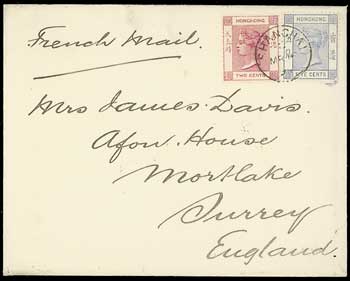 French Mail.
HONG KONG
TWO CENTS
HONG KONG
FIVE CENTS
SHANGHAI
Mrs James Davis.
Afon House
Mortlake
Surrey
England.